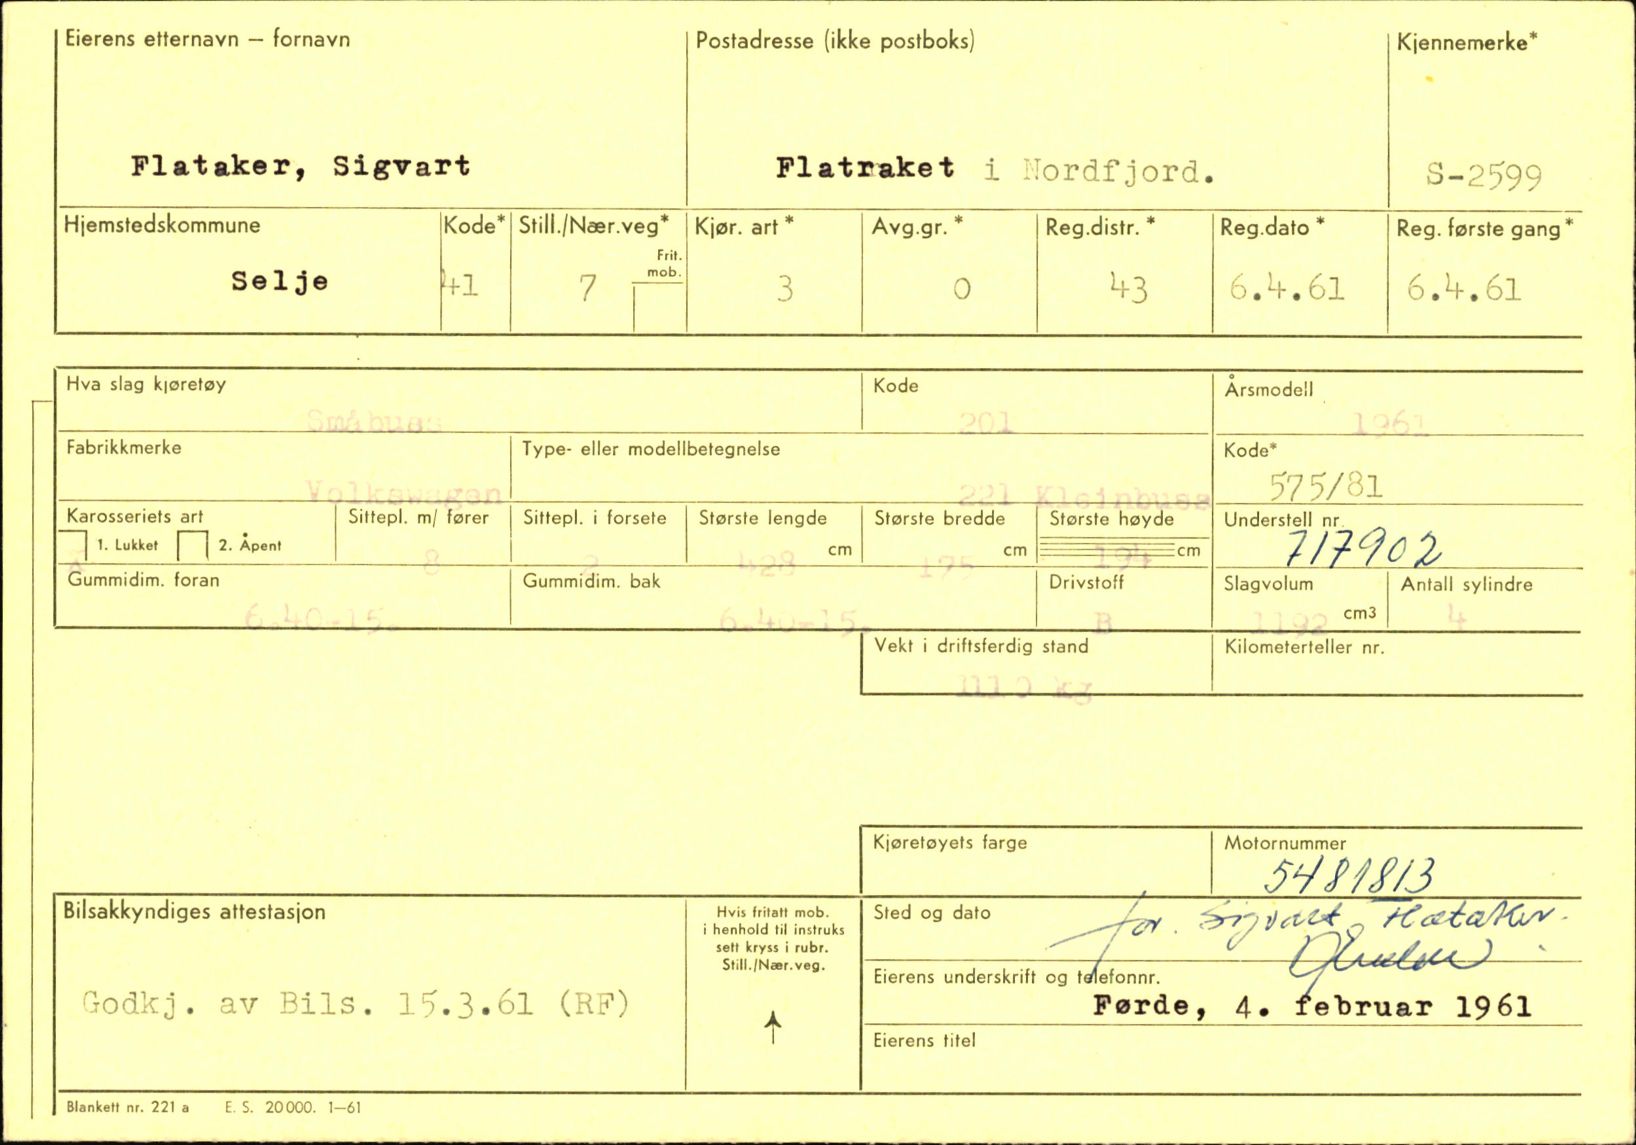 Eierens etternavn – fornavn
Postadresse (ikke postboks)
Kjennemerke*
Flataker, Sigvart
Flatraket i Nordfjord.
S-2599
Hjemstedskommune
Kode*
Still./Nær.veg*
Frit. mob.
Kjør. art*
Avg.gr.*
Reg.distr.*
Reg.dato*
Reg. første gang*
Selje
41
7
3
0
43
6.4.61
6.4.61
Hva slag kjøretøy
Kode
Årsmodell
Småbuss
201
1961
Fabrikkmerke
Type- eller modellbetegnelse
Kode*
Volkswagen
221 Kleinbuss
575/81
Karosseriets art
Sittepl. m/ fører
Sittepl. i forsete
Største lengde
Største bredde
Største høyde
Understell nr.
1. Lukket
2. Åpent
8
2
428 cm
175 cm
194 cm
717902
Gummidim. foran
Gummidim. bak
Drivstoff
Slagvolum
Antall sylindre
6.40-15.
6.40-15.
B
1192 cm3
4
Vekt i driftsferdig stand
Kilometerteller nr.
1110 kg
Kjøretøyets farge
Motornummer
5481813
Bilsakkyndiges attestasjon
Hvis fritatt mob.
i henhold til instruks
sett kryss i rubr.
Still./Nær.veg.
Sted og dato
for Sigvart Flataker.
Eierens underskrift og telefonnr.
Godkj. av Bils. 15.3.61 (RF)
Førde, 4. februar 1961
Eierens titel
Blankett nr. 221 a E. S. 20 000. 1–61